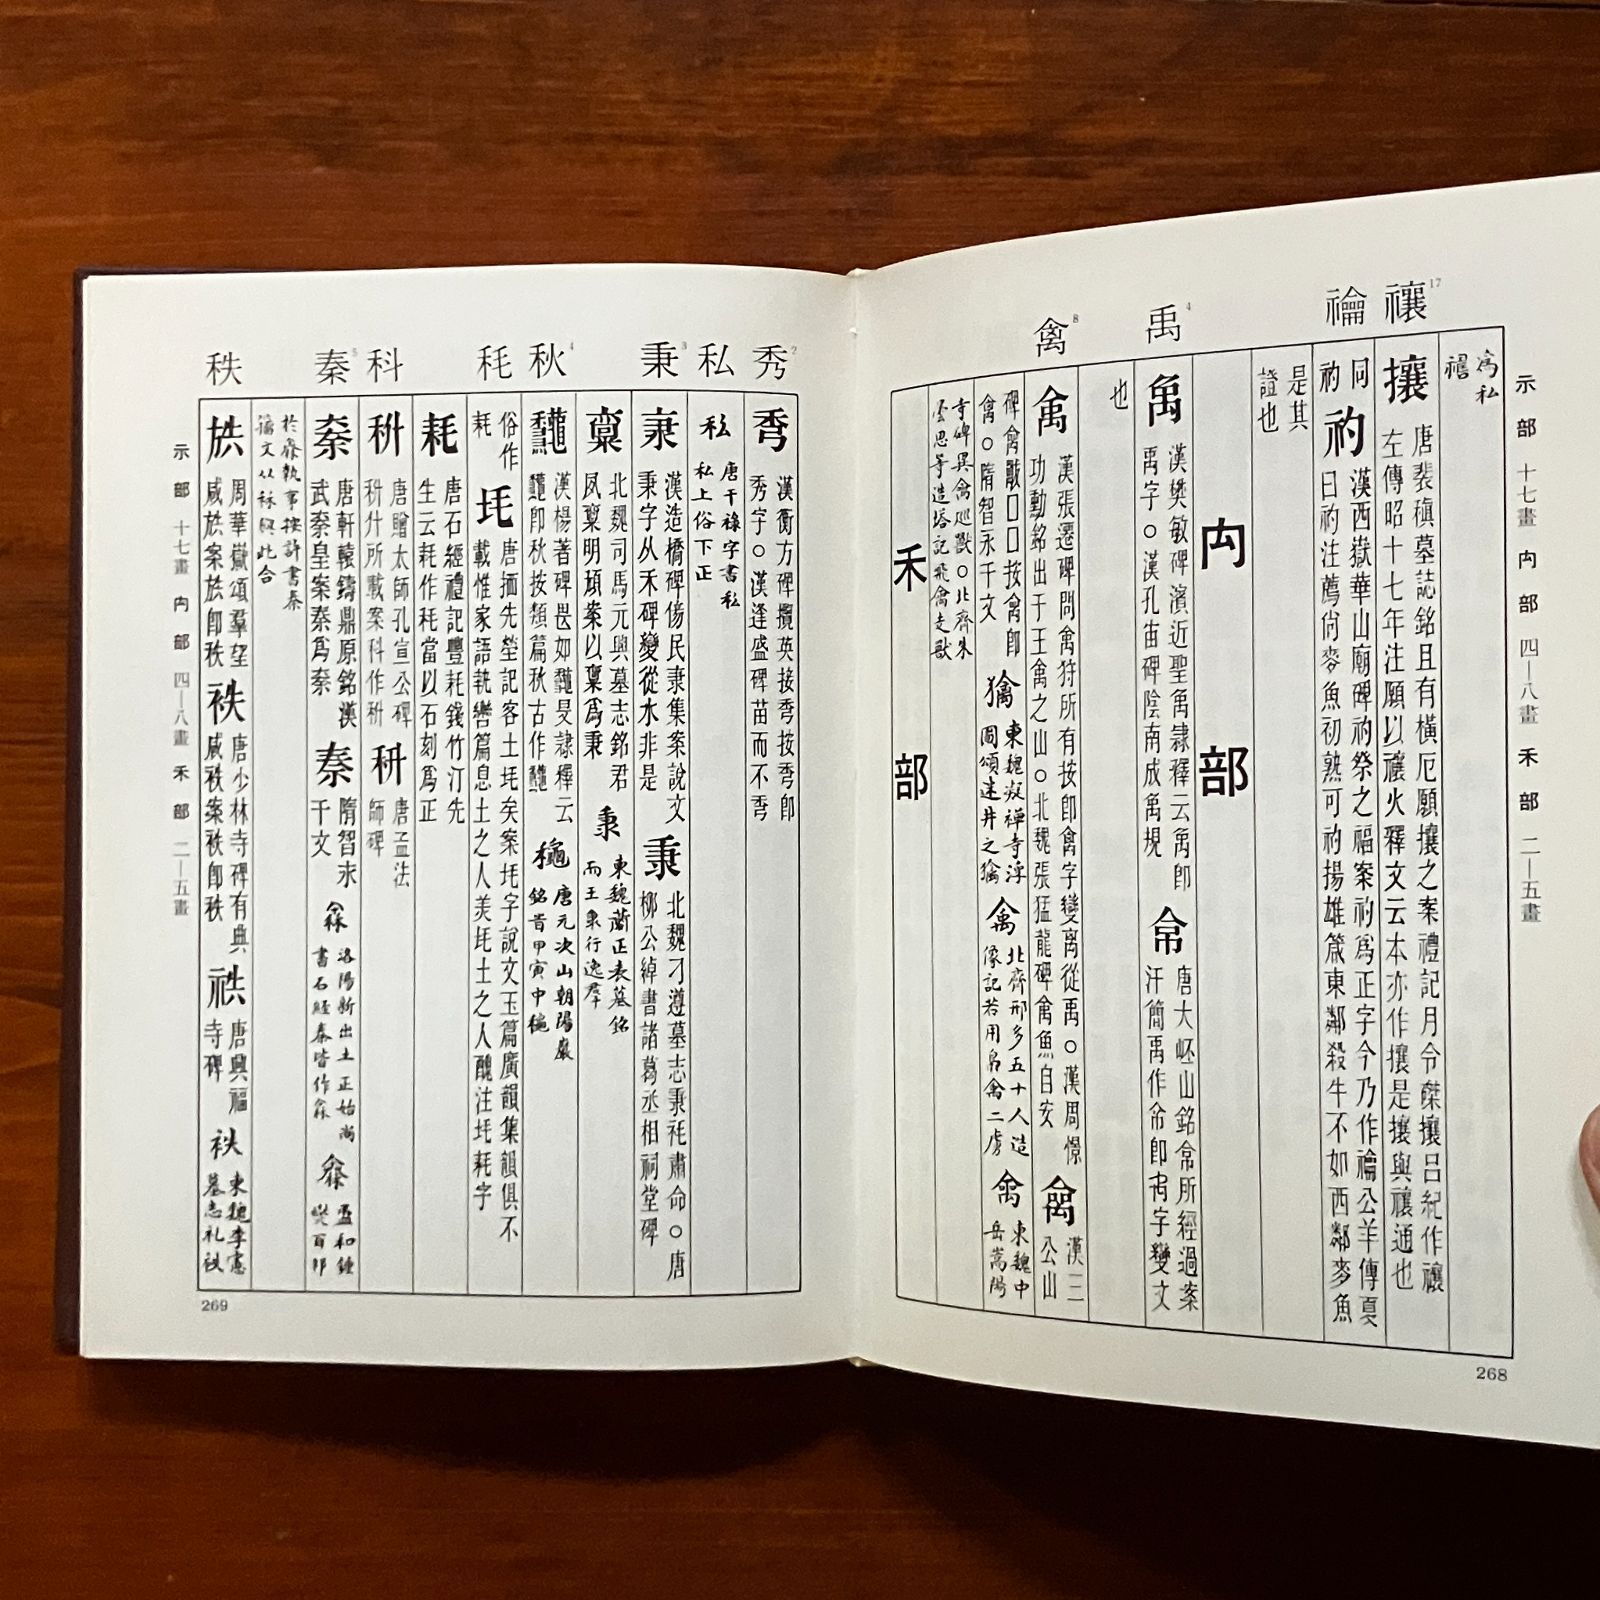 禳 禴
禹
禽
示部 十七畫 禸部 四—八畫 禾部 二—五畫
爲私
禳
攘
唐裴稹墓誌銘且有橫厄願攘之案禮記月令磔攘呂紀作禳
左傳昭十七年注願以禳火釋文云本亦作攘是攘與禳通也
同
礿
漢西嶽華山廟碑礿祭之福案礿爲正字今乃作禴公羊傳夏
曰礿注薦尚麥魚初熟可礿揚雄箴東鄰殺牛不如西鄰麥魚
是其
證也
禸部
漢樊敏碑濱近聖禼隸釋云禼卽
禹字○漢孔宙碑陰南成禼規
唐大岯山銘帟所經過案
汗簡禹作帟卽字變文
也
漢張遷碑問禽狩所有按卽禽字變离從禹○漢周憬
功勳銘出于王禽之山○北魏張猛龍碑禽魚自安
漢三
公山
碑禽獸□□按禽卽
禽○隋智永千文
東魏凝禪寺浮
圖頌迷井之㺗
北齊邢多五十人造
像記若用爲禽二虜
東魏中
岳嵩陽
寺碑異禽巡獸○北齊朱
曇思等造塔記飛禽走獸
禾部
268
秀
私
秉
秋
秏
科
秦
秩
漢衡方碑攬英接秀按秀卽
秀字○漢逢盛碑苗而不秀
私
唐干祿字書私
私上俗下正
漢造橋碑傍民隶集案說文
秉字从禾碑變從水非是
北魏刁遵墓志秉秏肅命○唐
柳公綽書諸葛丞相祠堂碑
北魏司馬元興墓志銘君
夙稟明頍案以稟爲秉
東魏蕭正表墓銘
而王秉行逸群
漢楊著碑畏如龝旻隸釋云
龝卽秋按類篇秋古作龝
唐元次山朝陽巖
銘昔甲寅中秋
俗作
耗
唐𢌿先塋記客土㲌矣案㲌字說文玉篇廣韻集韻俱不
載惟家語執轡篇息土之人美㲌土之人醜注㲌耗字
耗
唐石經禮記豐耗錢竹汀先
生云耗作秏當以石刻爲正
唐贈太師孔宣公碑
秚什所載案科作秚
唐孟法
師碑
唐軒轅鑄鼎原銘漢
武秦皇案秦爲秦
隋智永
千文
洛陽新出土正始尚
書石經秦皆作秦
盄和鍾
奱百邦
於秦執事按許書秦
籀文从秝與此合
周華嶽頌羣望
咸袟案袟卽秩
唐少林寺碑有典
咸秩案秩卽秩
唐興福
寺碑
東魏李憲
墓志礼袟
示部 十七畫 禸部 四—八畫 禾部 二—五畫
269